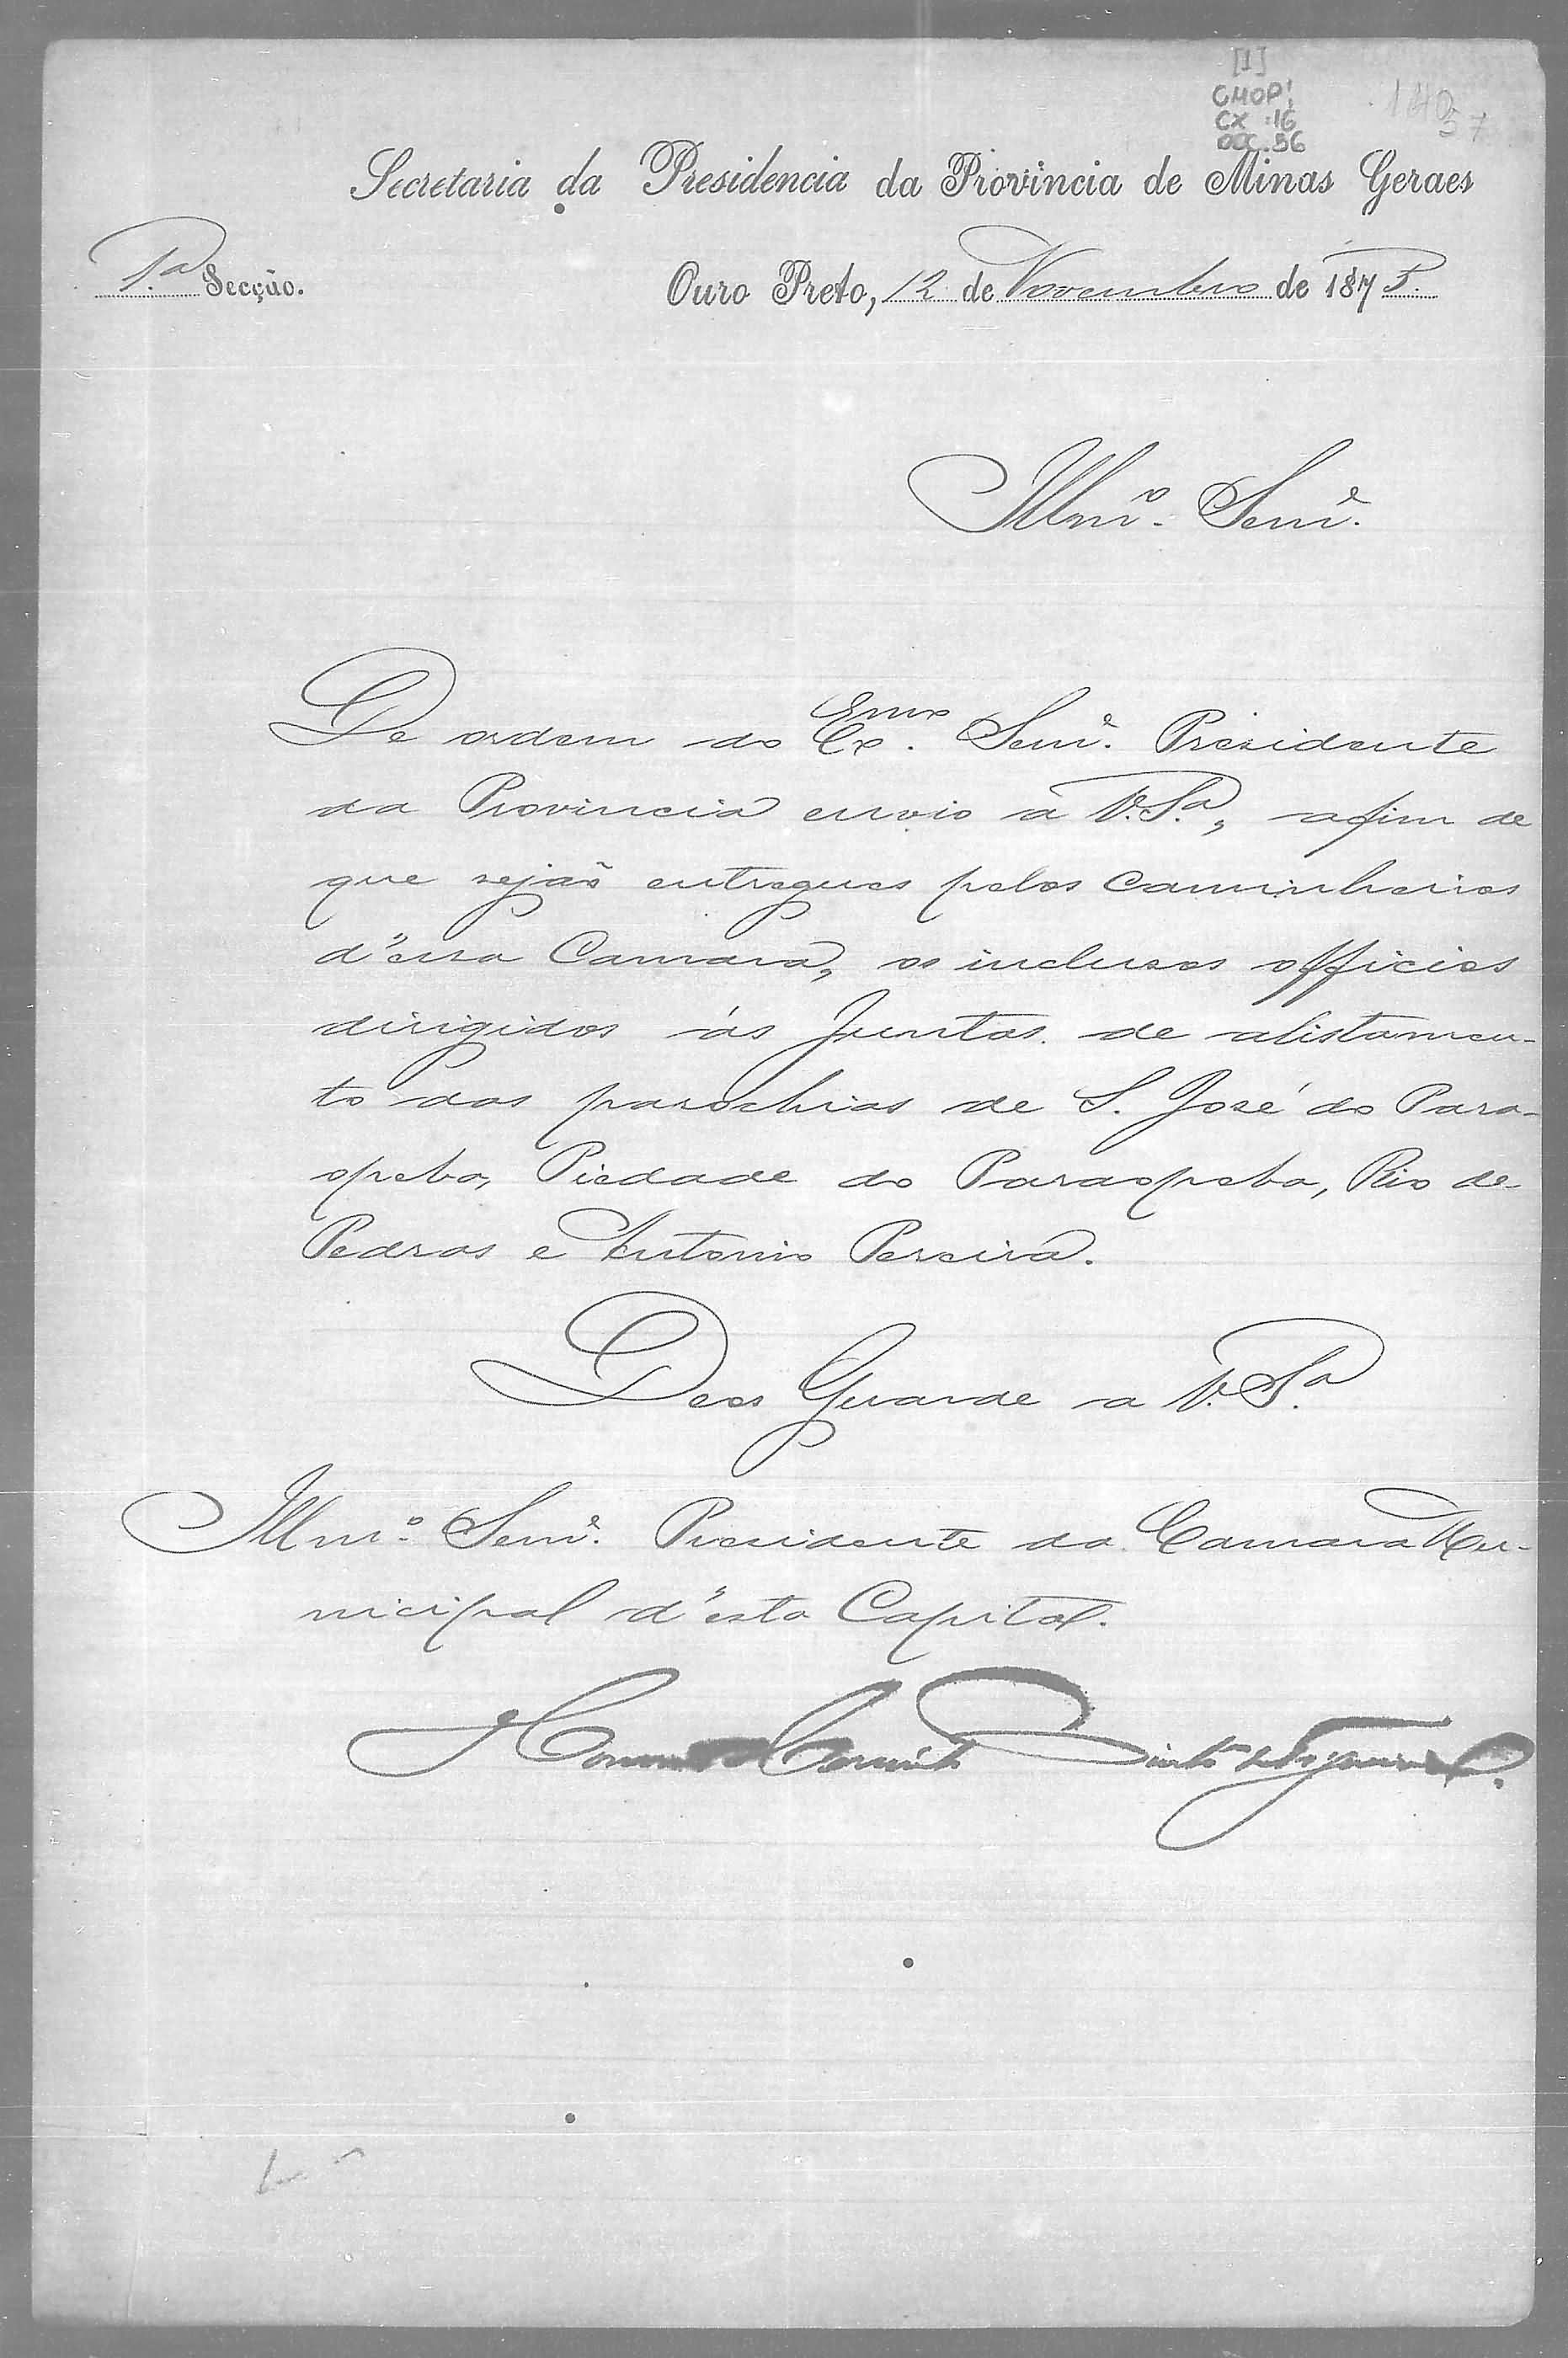 [1]
CMOP!
CX .16
DOC.56
140
57
Secretaria da Presidencia da Provincia de Minas Geraes
1.ª Secção.
Ouro Preto, 12 de Novembro de 1875.
Illmº. Senr.
De ordem do Exmo. Senr. Presidente
da Provincia envio a V.Sª., afim de
que sejão entregues pelos caminheiros
d'essa Camara, os inclusos officios
dirigidos ás Juntas de alistamen-
to das parochias de S. José do Para-
opeba, Piedade do Paraopeba, Rio de
Pedras e Antonio Pereira.
Deos Guarde a V.Sª.
Illmº. Senr. Presidente da Camara Mu-
nicipal d'esta Capital.